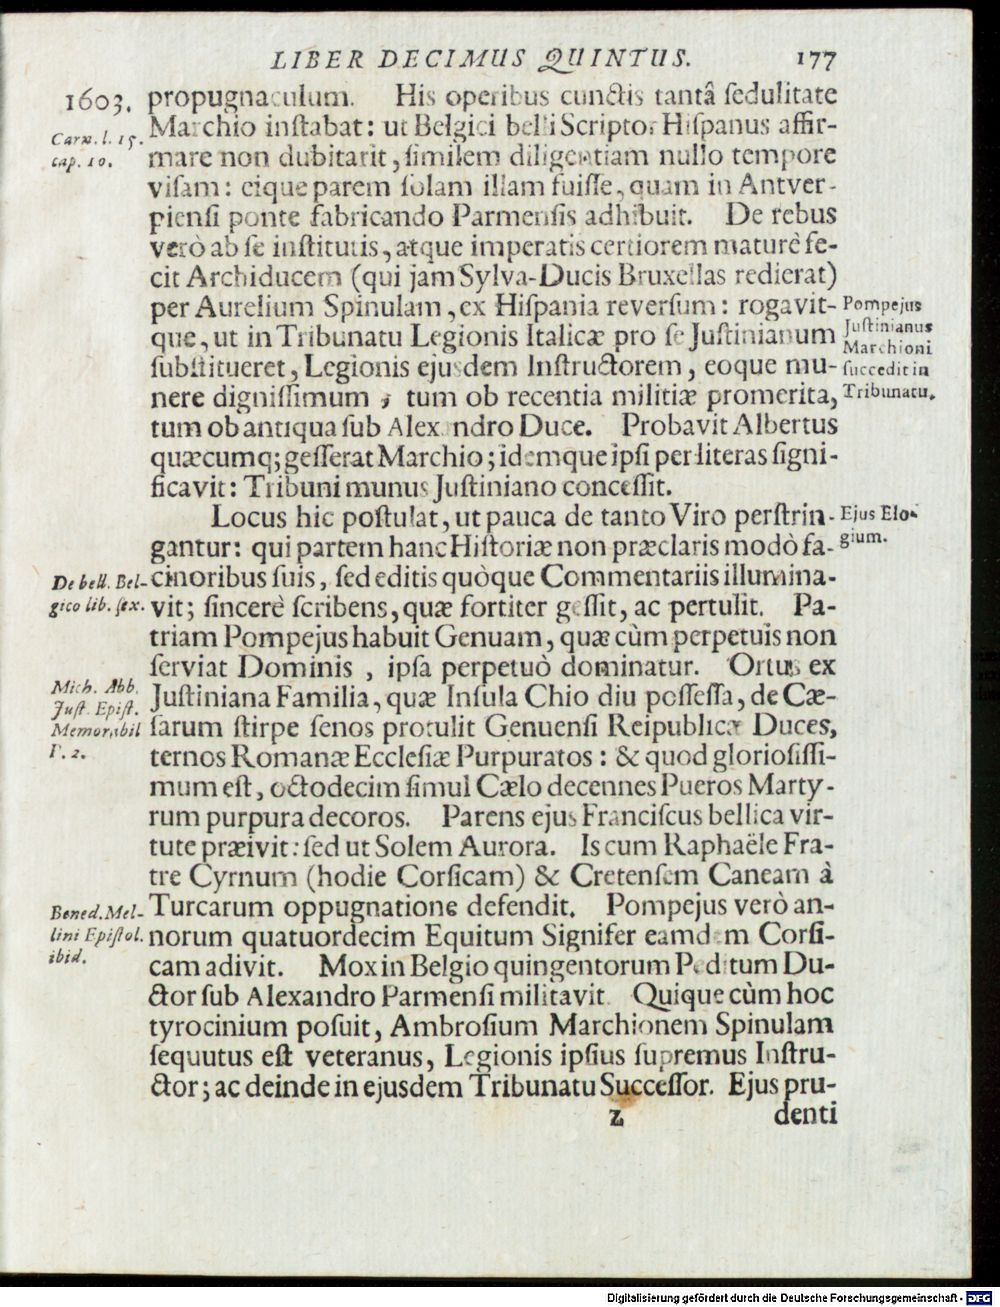 LIBER DECIMUS QUINTUS. 177
1603.
propugnaculum. His operibus cunctis tantâ ſedulitate
Carn. l. 15.
cap. 10.
Marchio inſtabat: ut Belgici belli Scriptor Hiſpanus affir-
mare non dubitarit, ſimilem diligentiam nullo tempore
viſam: eique parem ſolam illam fuiſſe, quam in Antver-
pienſi ponte fabricando Parmenſis adhibuit. De rebus
verò ab ſe inſtitutis, atque imperatis certiorem maturè fe-
cit Archiducem (qui jam Sylva-Ducis Bruxellas redierat)
per Aurelium Spinulam, ex Hiſpania reverſum: rogavit-
Pompejus
Juſtinianus
Marchioni
ſuccedit in
Tribunatu.
que, ut in Tribunatu Legionis Italicæ pro ſe Juſtinianum
ſubſtitueret, Legionis ejusdem Inſtructorem, eoque mu-
nere digniſſimum; tum ob recentia militiæ promerita,
tum ob antiqua ſub Alexandro Duce. Probavit Albertus
quæcumq; geſſerat Marchio; idemque ipſi per literas ſigni-
ficavit: Tribuni munus Juſtiniano conceſſit.
Locus hic poſtulat, ut pauca de tanto Viro perſtrin-
Ejus Elo-
gium.
gantur: qui partem hanc Hiſtoriæ non præclaris modò fa-
De bell. Bel-
gico lib. ſex.
cinoribus ſuis, ſed editis quòque Commentariis illumina-
vit; ſincerè ſcribens, quæ fortiter geſſit, ac pertulit. Pa-
triam Pompejus habuit Genuam, quæ cùm perpetuis non
ſerviat Dominis, ipſa perpetuò dominatur. Ortus ex
Mich. Abb.
Juſt. Epiſt.
Memorabil
P. 2.
Juſtiniana Familia, quæ Inſula Chio diu poſſeſſa, de Cæ-
ſarum ſtirpe ſenos protulit Genuenſi Reipublicæ Duces,
ternos Romanæ Eccleſiæ Purpuratos: & quod glorioſiſſi-
mum eſt, octodecim ſimul Cælo decennes Pueros Marty-
rum purpura decoros. Parens ejus Franciſcus bellica vir-
tute præivit: ſed ut Solem Aurora. Is cum Raphaële Fra-
tre Cyrnum (hodie Corſicam) & Cretenſem Caneam â
Bened. Mel-
lini Epiſtol.
ibid.
Turcarum oppugnatione defendit. Pompejus verò an-
norum quatuordecim Equitum Signifer eamdem Corſi-
cam adivit. Mox in Belgio quingentorum Peditum Du-
ctor ſub Alexandro Parmenſi militavit Quique cùm hoc
tyrocinium poſuit, Ambroſium Marchionem Spinulam
ſequutus eſt veteranus, Legionis ipſius ſupremus Inſtru-
ctor; ac deinde in ejusdem Tribunatu Succeſſor. Ejus pru-
z denti
Digitalisierung gefördert durch die Deutsche Forschungsgemeinschaft - DFG